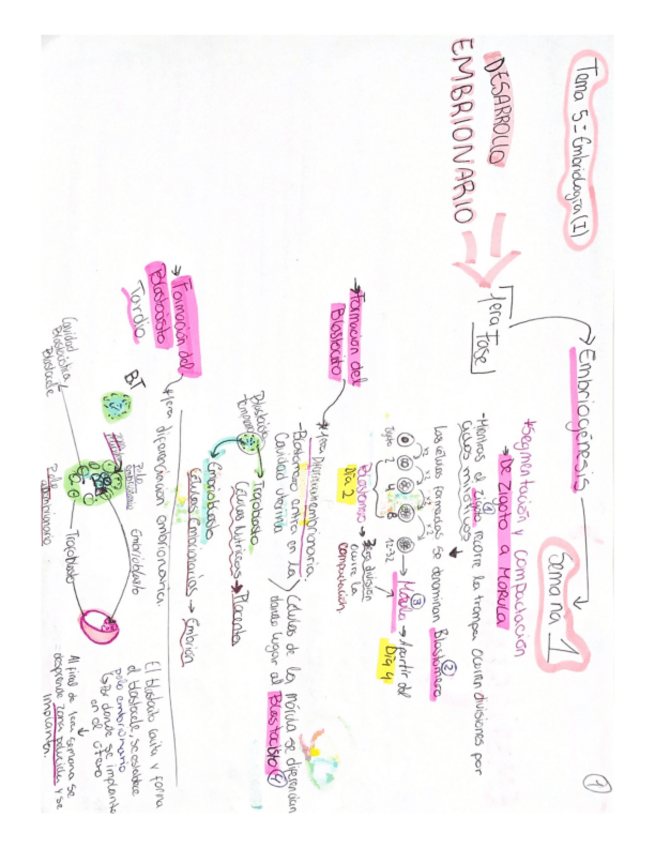 Tema 5 = Embriología (I)
①
DESARROLLO
EMBRIONARIO
1era Fase
Embriogénesis
Semana 1
*Segmentación y compactación
→ De Zigoto a MÓRULA
-Mientras el zigoto recorre la trompa ocurren divisiones por
①
ciclos mitóticos
Las células formadas se denominan Blastómero
②
x2
x2
x2
x2
Zigoto
2
4
8
12-32
→ Mórula → A partir del
③
Día 4
Blastómero → 3era división
Día 2
ocurre la
compactación.
→ Formación del
Blastocito
1era embrionaria.
-Blastocisto entra en la
Cavidad uterina
Células de la mórula se diferencian
dando lugar al Blastocisto ④
Blastocisto
Temprano
Trofoblasto
Células Nutricias → Placenta
Embrioblasto
Células Embrionarias → Embrión
→ Formación del
Blastocisto
Tardio
1era diferenciación embrionaria.
BT
Cavidad
Blastocística /
Blastocele
Polo
embrionario
Embrioblasto
Trofoblasto
Polo
El blastocito cavita y forma
el blastocele, se establece
polo embrionario
↳ Por donde se implanta
en el útero
Al final de 1era semana se
desprende zona pelúcida y se
implanta.